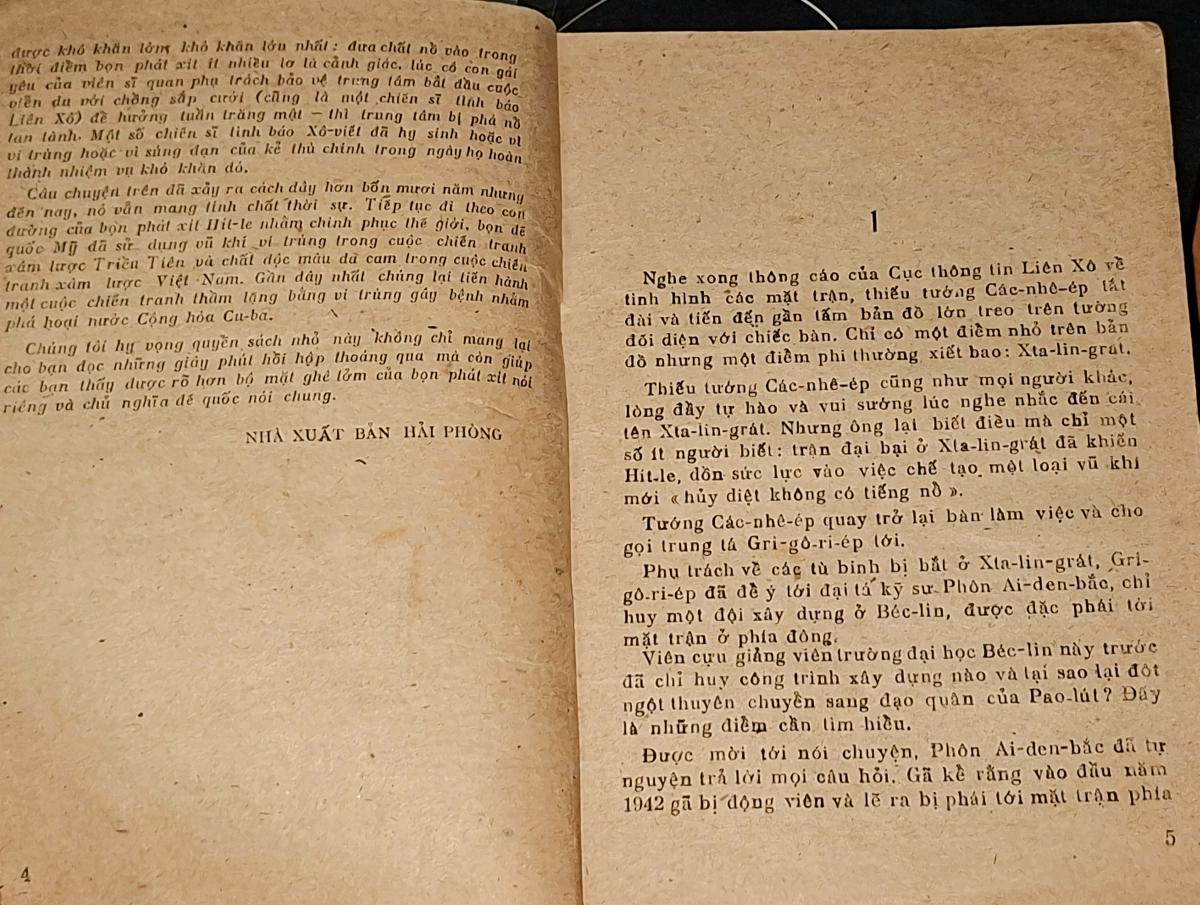 được khó khăn lớn khó khăn lớn nhất : đưa chất nổ vào trong
thời điểm bọn phát xít ít nhiều lơ là cảnh giác, lúc cô con gái
yêu của viên sĩ quan phụ trách bảo vệ trung tâm bắt đầu cuộc
viễn du với chồng sắp cưới (cũng là một chiến sĩ tình báo
Liên Xô) để hưởng tuần trăng mật — thì trung tâm bị phá nổ
tan tành. Một số chiến sĩ tình báo Xô-viết đã hy sinh hoặc vì
vi trùng hoặc vì súng đạn của kẻ thù chính trong ngày họ hoàn
thành nhiệm vụ khó khăn đó.
Câu chuyện trên đã xảy ra cách đây hơn bốn mươi năm nhưng
đến nay, nó vẫn mang tính chất thời sự. Tiếp tục đi theo con
đường của bọn phát xít Hít-le nhằm chinh phục thế giới, bọn đế
quốc Mỹ đã sử dụng vũ khí vi trùng trong cuộc chiến tranh
xâm lược Triều Tiên và chất độc màu da cam trong cuộc chiến
tranh xâm lược Việt Nam. Gần đây nhất chúng lại tiến hành
một cuộc chiến tranh thầm lặng bằng vi trùng gây bệnh nhằm
phá hoại nước Cộng hòa Cu-ba.
Chúng tôi hy vọng quyển sách nhỏ này không chỉ mang lại
cho bạn đọc những giây phút hồi hộp thoáng qua mà còn giúp
các bạn thấy được rõ hơn bộ mặt ghê tởm của bọn phát xít nói
riêng và chủ nghĩa đế quốc nói chung.
NHÀ XUẤT BẢN HẢI PHÒNG
4
1
Nghe xong thông cáo của Cục thông tin Liên Xô về
tình hình các mặt trận, thiếu tướng Các-nhê-ép tắt
đài và tiến đến gần tấm bản đồ lớn treo trên tường
đối diện với chiếc bàn. Chỉ có một điểm nhỏ trên bản
đồ nhưng một điểm phi thường xiết bao : Xta-lin-grát.
Thiếu tướng Các-nhê-ép cũng như mọi người khác,
lòng đầy tự hào và vui sướng lúc nghe nhắc đến cái
tên Xta-lin-grát. Nhưng ông lại biết điều mà chỉ một
số ít người biết : trận đại bại ở Xta-lin-grát đã khiến
Hit-le, dồn sức lực vào việc chế tạo một loại vũ khí
mới « hủy diệt không có tiếng nổ ».
Tướng Các-nhê-ép quay trở lại bàn làm việc và cho
gọi trung tá Gri-gô-ri-ép tới.
Phụ trách về các tù binh bị bắt ở Xta-lin-grát, Gri-
gô-ri-ép đã để ý tới đại tá kỹ sư Phôn Ai-den-bắc, chỉ
huy một đội xây dựng ở Béc-lin, được đặc phái tới
mặt trận ở phía đông.
Viên cựu giảng viên trường đại học Béc-lin này trước
đã chỉ huy công trình xây dựng nào và tại sao lại đột
ngột thuyên chuyển sang đạo quân của Pao-lút ? Đấy
là những điểm cần tìm hiểu.
Được mời tới nói chuyện, Phôn Ai-den-bắc đã tự
nguyện trả lời mọi câu hỏi. Gã kể rằng vào đầu năm
1942 gã bị động viên và lẽ ra bị phái tới mặt trận phía
5